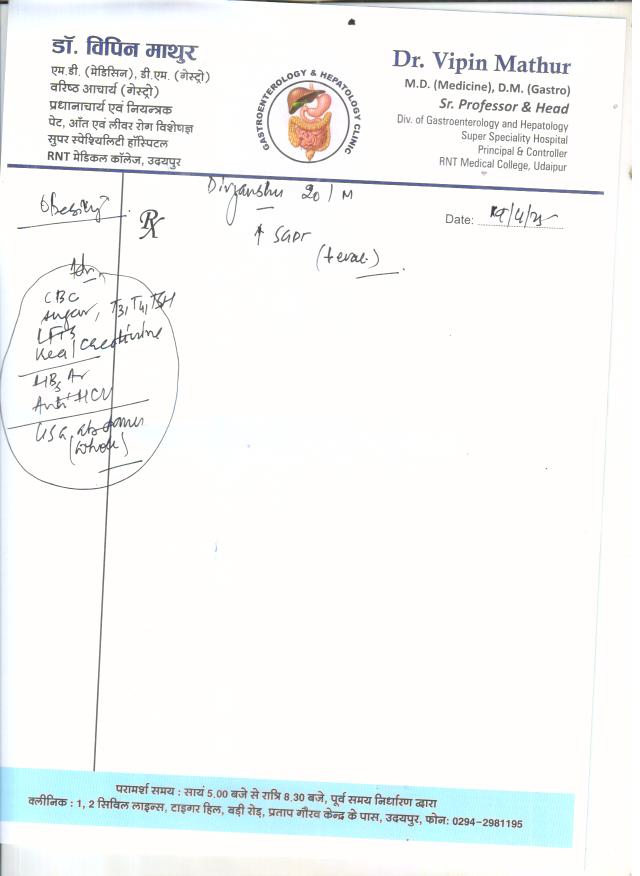 डॉ. विपिन माथुर
एम.डी. (मेडिसिन), डी.एम. (गेस्ट्रो)
वरिष्ठ आचार्य (गेस्ट्रो)
प्रधानाचार्य एवं नियन्त्रक
पेट, आँत एवं लीवर रोग विशेषज्ञ
सुपर स्पेश्यिलिटी हॉस्पिटल
RNT मेडिकल कॉलेज, उदयपुर
GASTROENTEROLOGY & HEPATOLOGY CLINIC
Dr. Vipin Mathur
M.D. (Medicine), D.M. (Gastro)
Sr. Professor & Head
Div. of Gastroenterology and Hepatology
Super Speciality Hospital
Principal & Controller
RNT Medical College, Udaipur
Divyanshu 20/M
Date:
Obesity
Rx
↑ SGPT
CBC
sugar, T3, T4, TSH
LFTs
creatinine
Anti HCV
USG abdomen
(whole)
परामर्श समय : सायं 5.00 बजे से रात्रि 8.30 बजे, पूर्व समय निर्धारण द्वारा
क्लीनिक : 1, 2 सिविल लाइन्स, टाइगर हिल, बड़ी रोड़, प्रताप गौरव केन्द्र के पास, उदयपुर, फोन: 0294-2981195